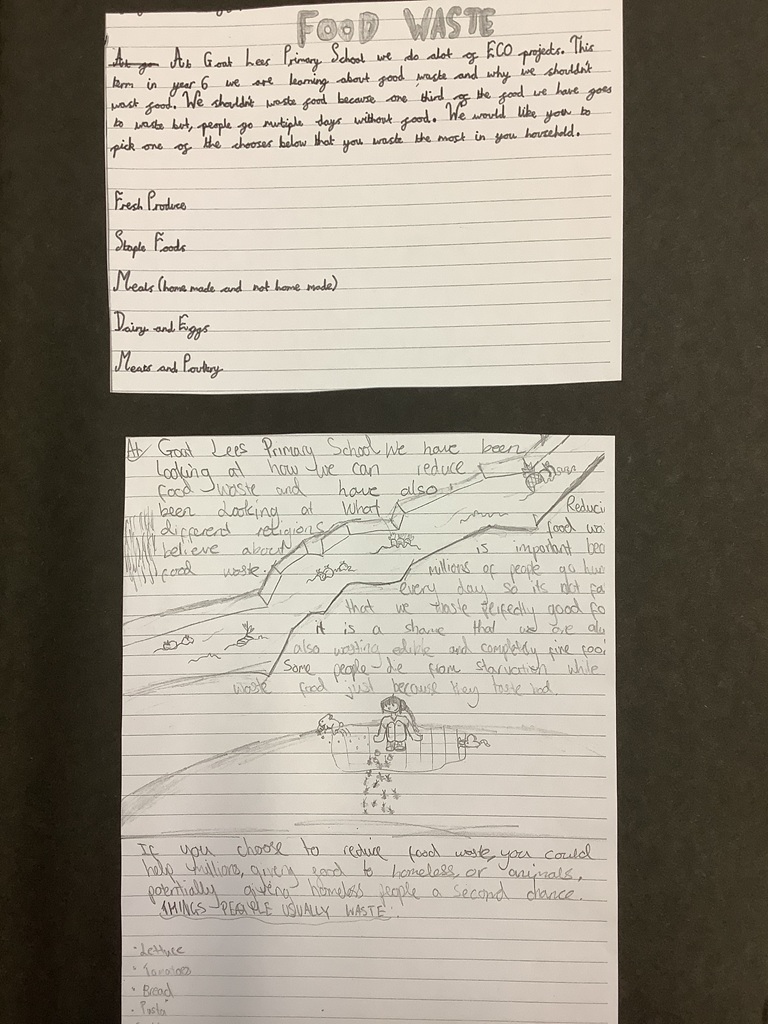 FOOD WASTE
At Goat Lees Primary School we do alot of ECO projects. This
term in year 6 we are learning about food waste and why we shouldn't
wast food. We shouldn't waste food because one third of the food we have goes
to waste but, people go mutiple days without food. We would like you to
pick one of the chooses below that you waste the most in you household.
Fresh Produce
Staple Foods
Meals (home made and not home made)
Dairy and Eggs
Meats and Poultry
At Goat Lees Primary School We have been
looking at how we can reduce
food waste and have also
been looking at what
different religions
believe about
food waste.
Reduci
food wa
is important bec
millions of people go hun
every day so its not fa
that we waste perfedly good fo
it is a shame that we are
also wasting edible and completly fine foo
Some people die from starvation while
waste food just because they taste bad.
If you choose to reduce food waste, you could
help millions, giving food to homeless, or animals,
potentially giving homeless people a second chance.
THINGS PEOPLE USUALLY WASTE:
· Lettuce
· Tomatoes
· Bread
· Pasta